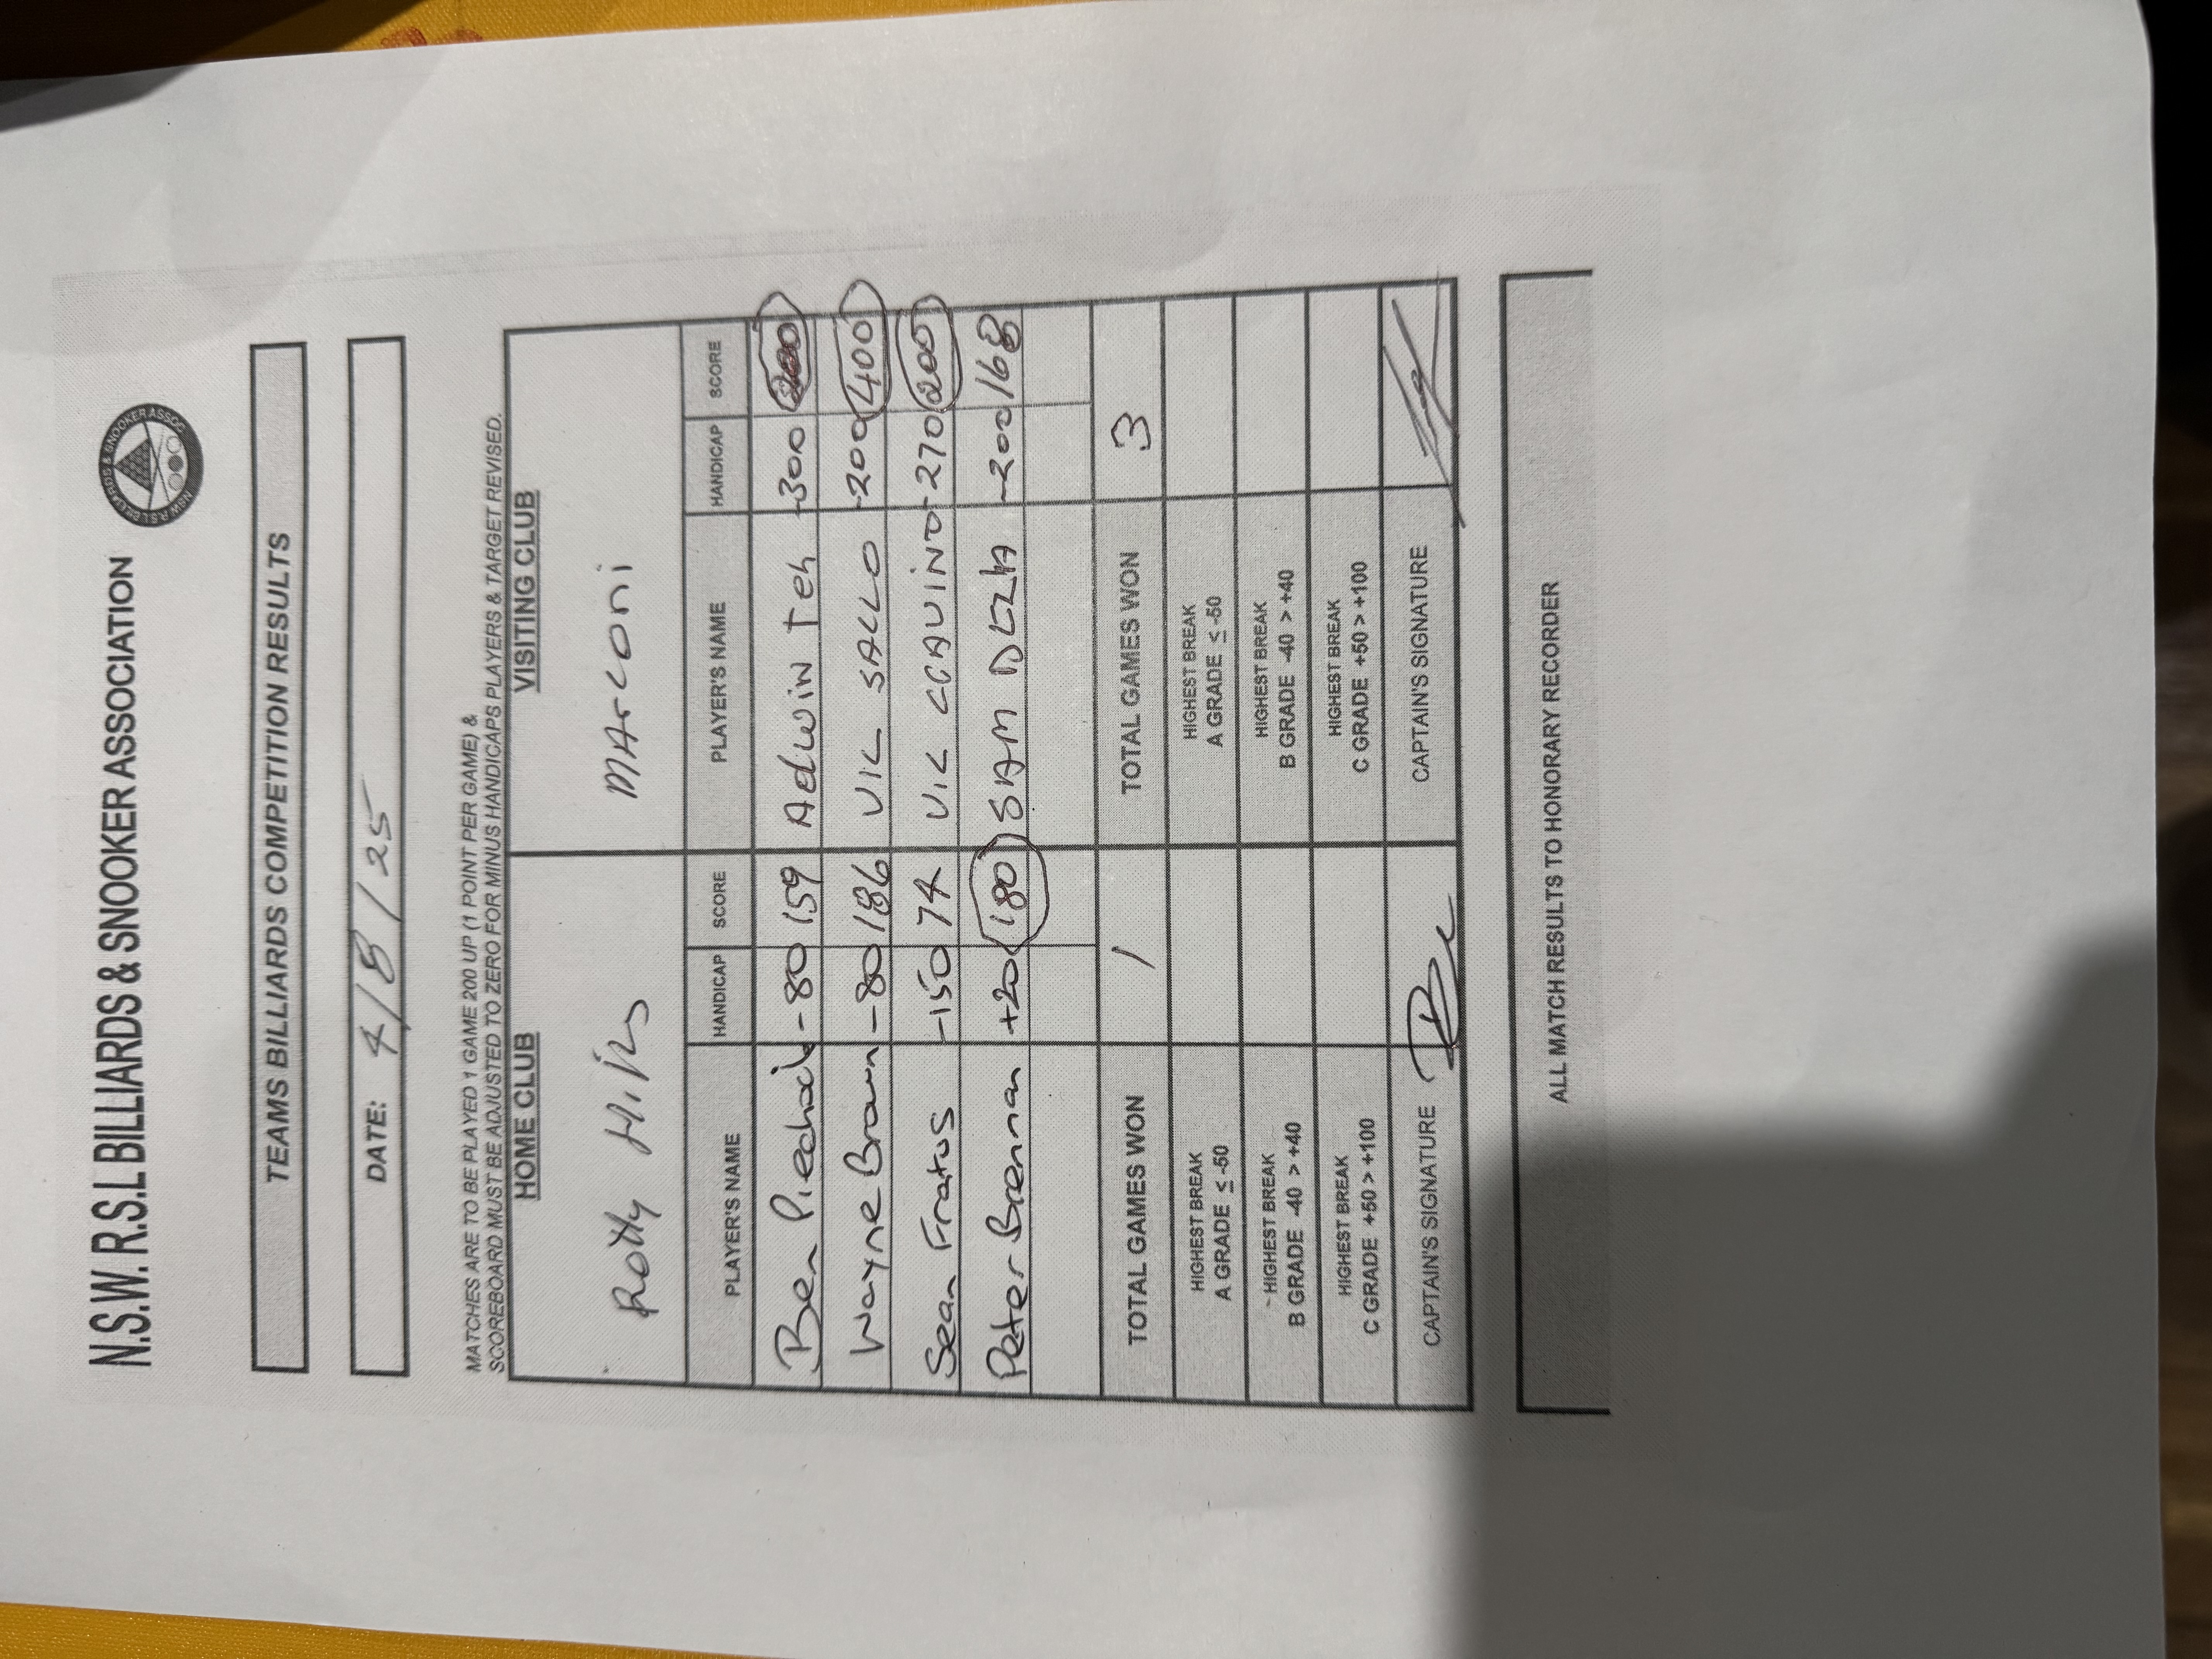 N.S.W. R.S.L BILLIARDS & SNOOKER ASSOCIATION
TEAMS BILLIARDS COMPETITION RESULTS
DATE: 4/8/25
MATCHES ARE TO BE PLAYED 1 GAME 200 UP (1 POINT PER GAME) &
SCOREBOARD MUST BE ADJUSTED TO ZERO FOR MINUS HANDICAPS PLAYERS & TARGET REVISED.
HOME CLUB VISITING CLUB
Rotty Hills MArconi
PLAYER'S NAME HANDICAP SCORE PLAYER'S NAME HANDICAP SCORE
Ben -80 159 Adwin Teh -300
Wayne Brown -80 186 VIC SALLO -200 400
Sean Fratus -150 74 VIC -270 200
Peter Brennan +20 180 SAM -200 168
TOTAL GAMES WON 1 TOTAL GAMES WON 3
HIGHEST BREAK HIGHEST BREAK
A GRADE ≤ -50 A GRADE ≤ -50
HIGHEST BREAK HIGHEST BREAK
B GRADE -40 > +40 B GRADE -40 > +40
HIGHEST BREAK HIGHEST BREAK
C GRADE +50 > +100 C GRADE +50 > +100
CAPTAIN'S SIGNATURE CAPTAIN'S SIGNATURE
ALL MATCH RESULTS TO HONORARY RECORDER